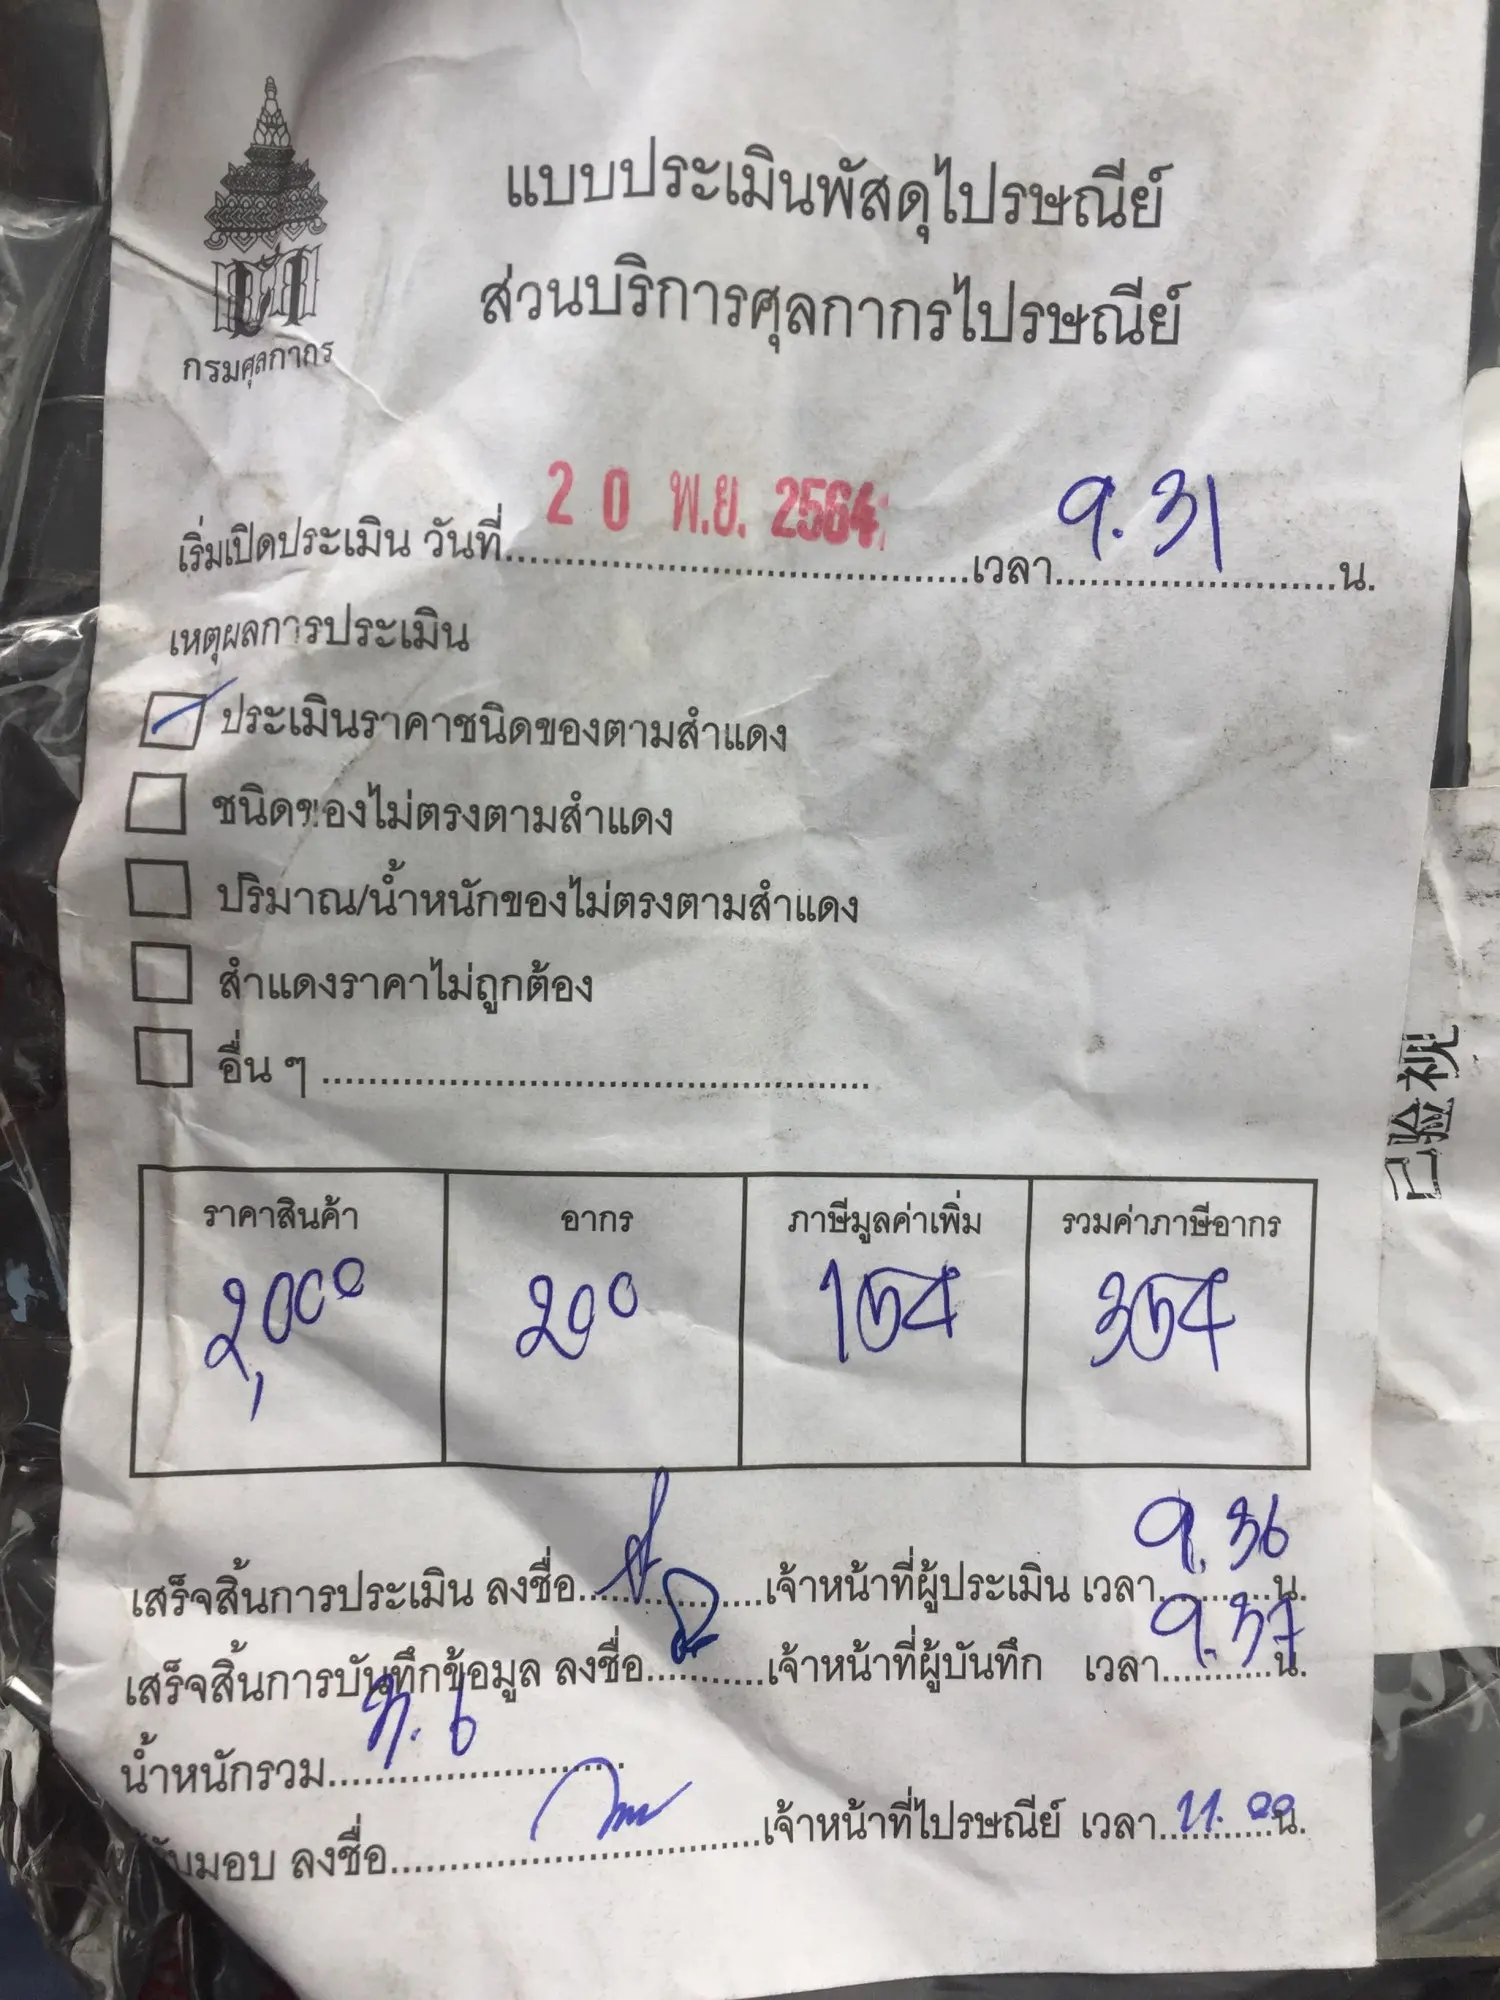 แบบประเมินพัสดุไปรษณีย์
ส่วนบริการศุลกากรไปรษณีย์
กรมศุลกากร
เริ่มเปิดประเมิน วันที่ 20 พ.ย. 2564 เวลา 9.31 น.
เหตุผลการประเมิน
ประเมินราคาชนิดของตามสำแดง
ชนิดของไม่ตรงตามสำแดง
ปริมาณ/น้ำหนักของไม่ตรงตามสำแดง
สำแดงราคาไม่ถูกต้อง
อื่น ๆ ................................................
ราคาสินค้า อากร ภาษีมูลค่าเพิ่ม รวมค่าภาษีอากร
2,000 200 154 354
เสร็จสิ้นการประเมิน ลงชื่อ................เจ้าหน้าที่ผู้ประเมิน เวลา 9.36 น.
เสร็จสิ้นการบันทึกข้อมูล ลงชื่อ..........เจ้าหน้าที่ผู้บันทึก เวลา 9.37 น.
น้ำหนักรวม
รับมอบ ลงชื่อ................................เจ้าหน้าที่ไปรษณีย์ เวลา 11.00 น.
已验视